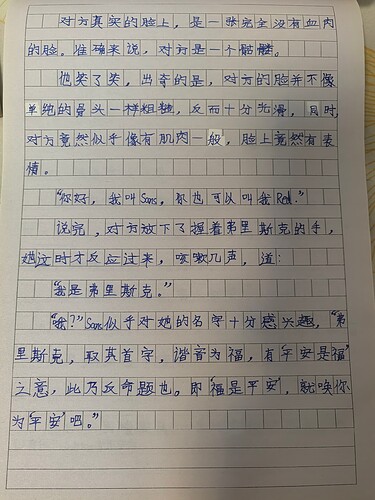 对方真实的脸上，是一张完全没有血肉
的脸。准确来说，对方是一个骷髅。
他笑了笑，出奇的是，对方的脸并不像
单纯的骨头一样粗糙，反而十分光滑，同时，
对方竟然似乎像有肌肉一般，脸上竟然有表
情。
“你好，我叫Sans，你也可以叫我Red.”
说完，对方放下了握着弗里斯克的手，
她这时才反应过来，咳嗽几声，道：
“我是弗里斯克。”
“我？”Sans似乎对她的名字十分感兴趣，“弗
里斯克，取其首字，谐音为福，有‘平安是福’
之意，此乃反命题也。即‘福是平安’，就唤你
为‘平安’吧。”